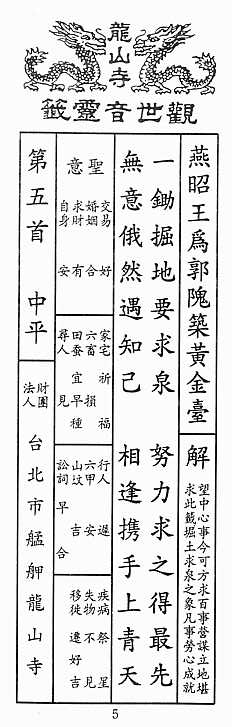 龍山寺
觀世音靈籤
燕昭王爲郭隗築黃金臺
解
望中心事今可方求百事營謀立地堪
求此籤掘土求泉之象凡事勞心成就
一鋤掘地要求泉 努力求之得最先
無意俄然遇知己 相逢携手上青天
聖意
交易 好
婚姻 合
求財 有
自身 安
家宅 祈福
六畜 損
田蚕 宜早種
尋人 見
行人 遲
六甲 安
山坟 吉
訟詞 早合
疾病 祭星
失物 不見
移徙 遷好吉
第五首 中平
財團法人
台北市艋舺龍山寺
5